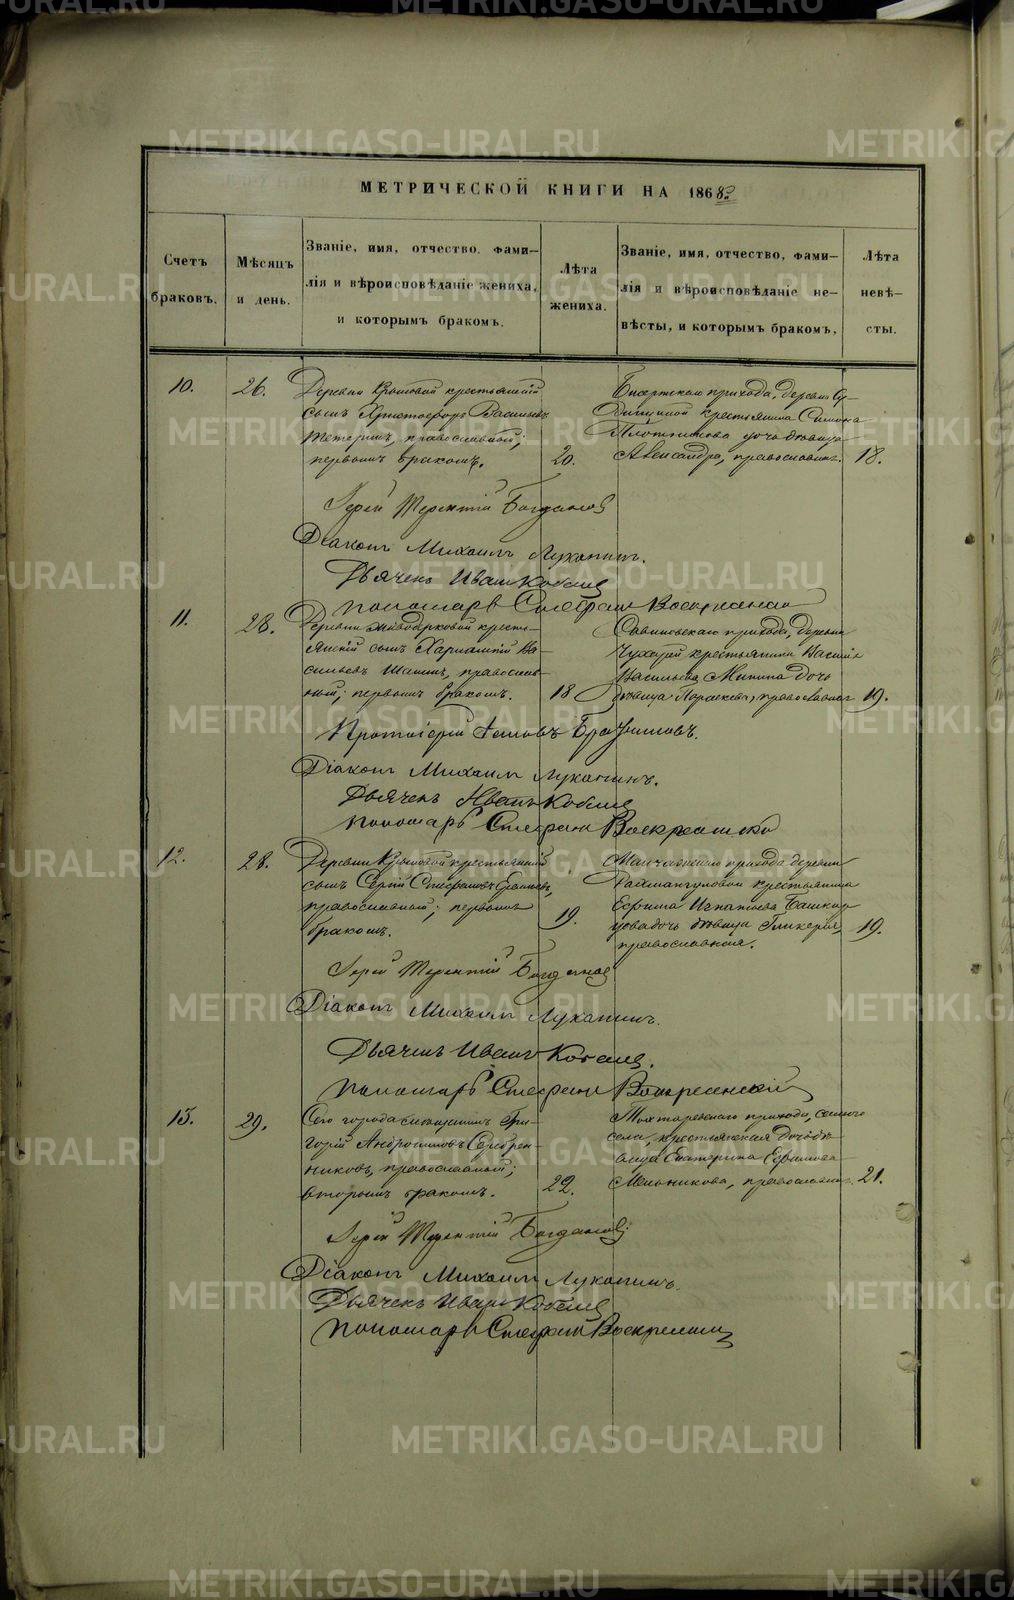 МЕТРИЧЕСКОЙ КНИГИ НА 1868
Счетъ браковъ.
Мѣсяцъ и день.
Званіе, имя, отчество, фами-
лія и вѣроисповѣданіе жениха,
и которымъ бракомъ.
Лѣта жениха.
Званіе, имя, отчество, фами-
лія и вѣроисповѣданіе не-
вѣсты, и которымъ бракомъ,
Лѣта невѣ-
сты.
10.
26.
Деревни крестьянскій
сынъ Христофоръ Васильевъ
православный;
первымъ бракомъ.
20.
прихода, деревни
крестьянина
Плотникова дочь дѣвица
Александра, православн.
18.
Іерей Терентій Богданов
Діаконъ Михаилъ Лукан­инъ.
Дьячекъ Иванъ
Пономарь Стефанъ Воскресенск
11.
28.
Деревни кресть-
янскій сынъ Харлампій Ва-
сильевъ православ-
ный; первымъ бракомъ.
18
Савиновскаго прихода, деревни
крестьянина Васил
Васильева Минина дочь
дѣвица Параскева, православная
19.
Протоіерей
Діаконъ Михаил Луканинъ.
Дьячекъ Иванъ
Пономарь Стефанъ Воскресенско
12.
28.
Деревни крестьянскій
сынъ Сергій Стефановъ
православный; первымъ
бракомъ.
19.
прихода деревни
крестьянина
Ефима Игнатьева Башкир
цова дочь дѣвица Гликерія,
православная.
19.
Іерей Терентій Богданов
Діаконъ Михаилъ Луканинъ.
Дьячекъ Иванъ
Пономарь Стефанъ Воскресенскій
13.
29.
Сего города мѣщанинъ Гри-
горій Андрониковъ Серебрен-
никовъ, православный;
вторымъ бракомъ.
22.
прихода,
села, крестьянская дочь дѣ-
вица Екатерина Ефимова
Мельникова, православн.
21.
Іерей Терентій Богданов
Діаконъ Михаилъ Луканинъ.
Дьячекъ Иванъ
Пономарь Стефанъ Воскресенск
METRIKI.GASO-URAL.RU